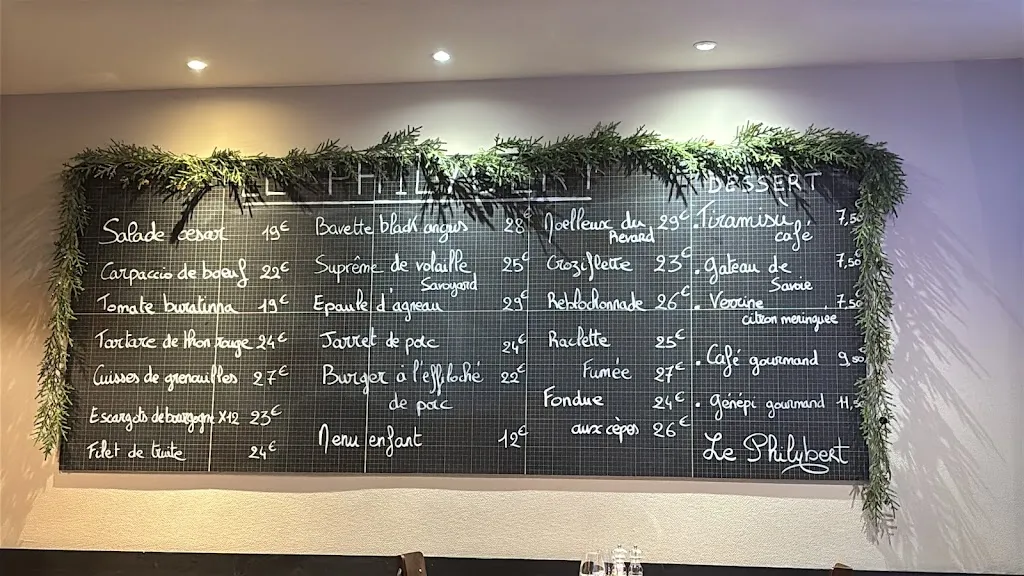 LE PHILYBERT
Salade cesar 19€
Carpaccio de boeuf 22€
Tomate buratinna 19€
Tartare de thon rouge 24€
Cuisses de grenouilles 27€
Escargots de bourgogne X12 23€
Filet de truite 24€
Bavette black angus 28€
Suprême de volaille 25€
Savoyard
Epaule d'agneau 29€
Jarret de porc 24€
Burger à l'effiloché 22€
de porc
Menu enfant 12€
Moelleux du 29€
Revard
Croziflette 23€
Reblochonnade 26€
Raclette 25€
Fumée 27€
Fondue 24€
aux cèpes 26€
DESSERT
. Tiramisu 7,50
café
. gateau de 7,50
Savoie
. Verrine 7,50
citron meringuee
. Café gourmand 9,50
. génépi gourmand 11,50
Le Philybert